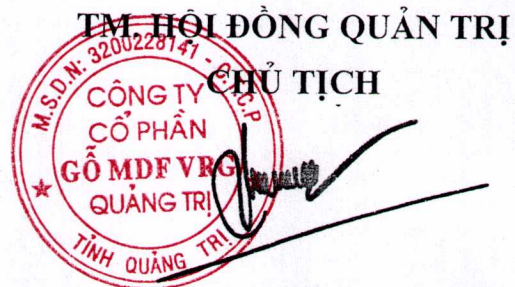 TM. HỘI ĐỒNG QUẢN TRỊ
CHỦ TỊCH
M.S.D.N: 3200228141 - C.T.C.P
CÔNG TY
CỔ PHẦN
GỖ MDF VRG
QUẢNG TRỊ
TỈNH QUẢNG TRỊ